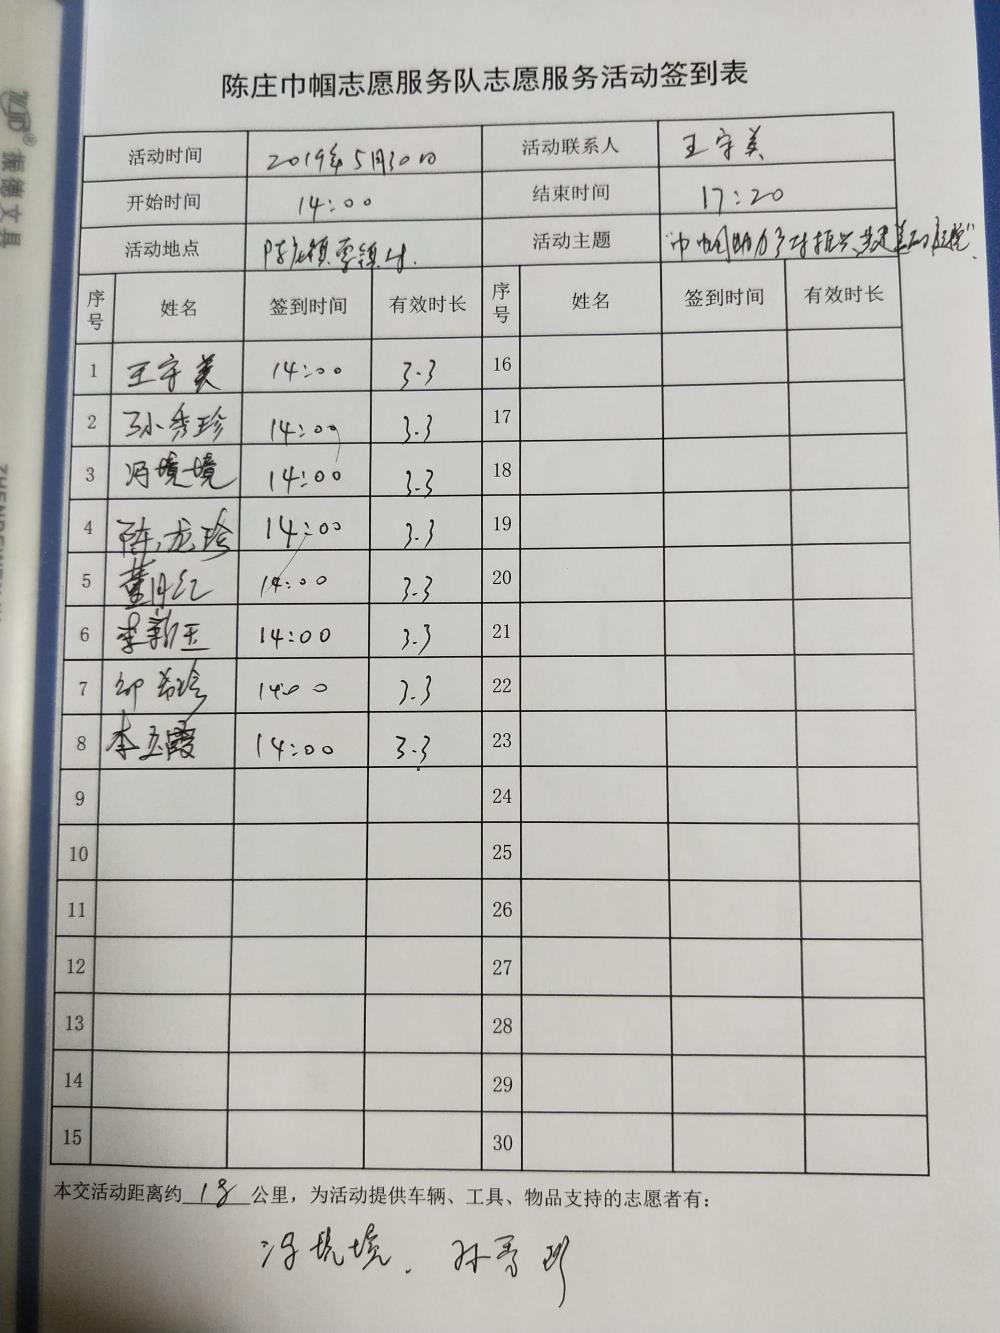 陈庄巾帼志愿服务队志愿服务活动签到表
活动时间 2019年5月30日 活动联系人 王守美
开始时间 14:00 结束时间 17:20
活动地点 陈庄镇 镇村 活动主题 "巾帼助力乡村振兴,共建美丽庭院"
序号 姓名 签到时间 有效时长 序号 姓名 签到时间 有效时长
1 王守美 14:00 3.3 16
2 孙秀珍 14:00 3.3 17
3 冯境境 14:00 3.3 18
4 陈龙珍 14:00 3.3 19
5 董月红 14:00 3.3 20
6 李新玉 14:00 3.3 21
7 希珍 14:00 3.3 22
8 李玉霞 14:00 3.3 23
9 24
10 25
11 26
12 27
13 28
14 29
15 30
本交活动距离约 18 公里，为活动提供车辆、工具、物品支持的志愿者有：
冯境境. 孙秀珍
振德文具